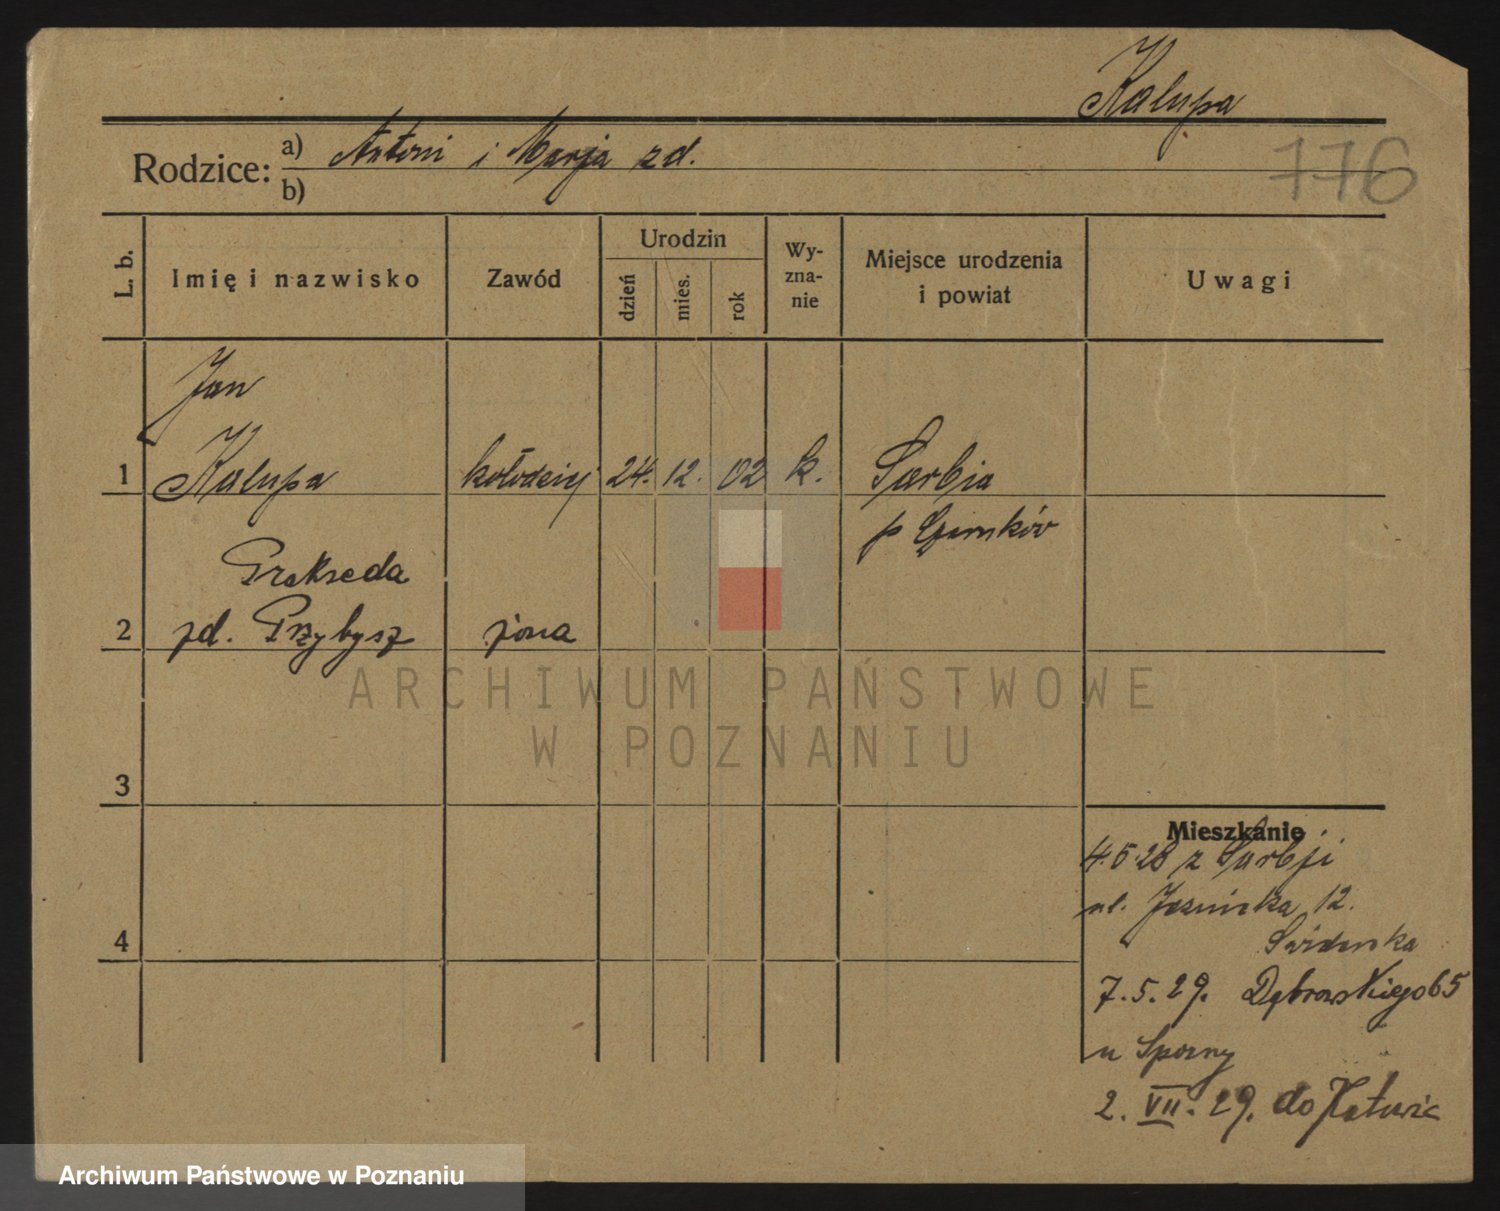 Kalupa
776
Rodzice: a) Antoni i Marja zd.
b)
L. b.
Imię i nazwisko
Zawód
Urodzin
dzień
mies.
rok
Wy-
zna-
nie
Miejsce urodzenia
i powiat
Uwagi
Jan
1 Kalupa kołodziej 24. 12. 02 k. Sarbia
p Czarnków
Prakseda
2 zd. Przybysz żona
3
4
Mieszkanie
4.5.28 z Sarbji
ul. 12.
7.5.29. Dąbrowskiego 65
u Sporny
2. VII. 29. do Katowic
ARCHIWUM PAŃSTWOWE
W POZNANIU
Archiwum Państwowe w Poznaniu